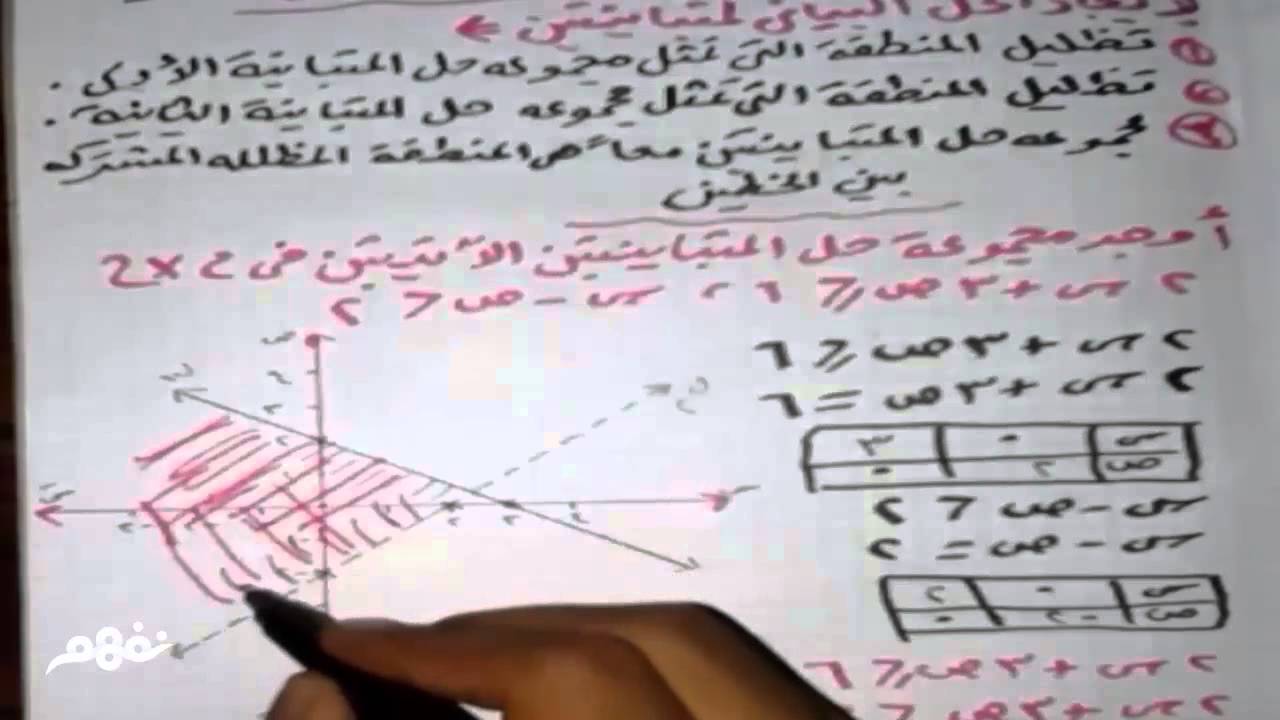 لإيجاد الحل البياني لمتباينتين ←
① تظليل المنطقة التي تمثل مجموعه حل المتباينة الأولى .
② تظليل المنطقة التي تمثل مجموعه حل المتباينة الثانية .
③ مجموعه حل المتباينتين معاً هي المنطقة المظلله المشتركه
بين الخطين
أوجد مجموعة حل المتباينتين الآتيتين في ح × ح
٢ س + ٣ ص ⩽ ٦ ، س - ص < ٢
٢ س + ٣ ص ⩽ ٦
٢ س + ٣ ص = ٦
س ٠ ٣
ص ٢ ٠
س - ص < ٢
س - ص = ٢
س ٠ ٢
ص -٢ ٠
٢ س + ٣ ص ⩽ ٦
نفهم